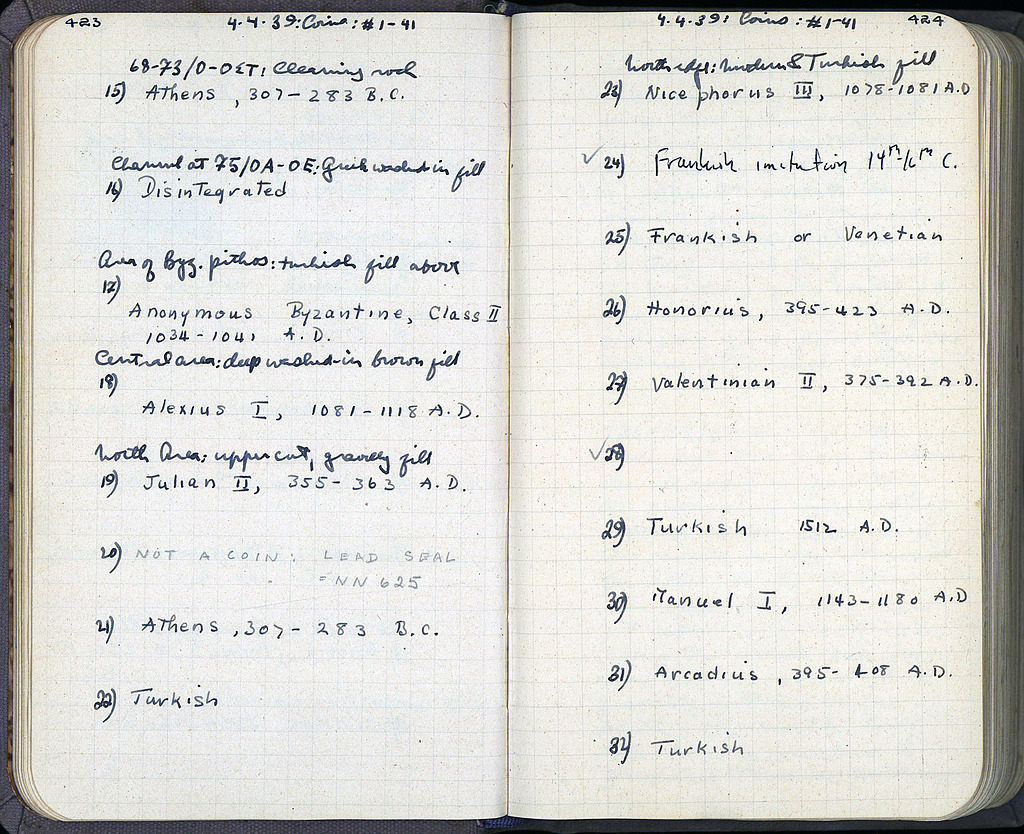 423
4.4.39: Coins: #1-41
68-73/O-OET: Cleaning rock
15) Athens, 307-283 B.C.
Channel at 75/OA-OE: Greek washed-in fill
16) Disintegrated
Area of Byz. pithos: turkish fill above
17)
Anonymous Byzantine, Class II
1034-1041 A.D.
Central area: deep washed-in brown fill
18)
Alexius I, 1081-1118 A.D.
North Area: upper cut, gravelly fill
19) Julian II, 355-363 A.D.
20) NOT A COIN: LEAD SEAL
= NN 625
21) Athens, 307-283 B.C.
22) Turkish
4.4.39: Coins: #1-41
424
North edge: modern & Turkish fill
23) Nicephorus III, 1078-1081 A.D
✓ 24) Frankish imitation 14th/ C.
25) Frankish or Venetian
26) Honorius, 395-423 A.D.
27) Valentinian II, 375-392 A.D.
✓ 28)
29) Turkish 1512 A.D.
30) Manuel I, 1143-1180 A.D
31) Arcadius, 395-408 A.D.
32) Turkish